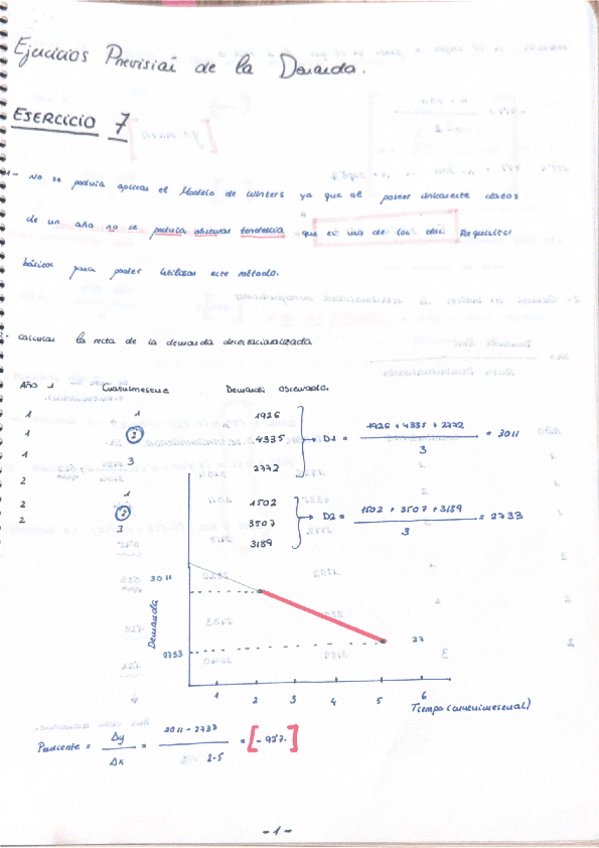 Ejercicios Previsión de la Demanda.
EJERCICIO 7
1- No se podría aplicar el Modelo de Winters ya que al poseer únicamente datos
de un año no se podría observar tendencia que es una de los dos Requisitos
básicos para poder utilizar este método.
2- Calculas la recta de la demanda desestacionalizada
Año 1 Cuatrimestre Demanda Observada.
1 1 1926
1 2 4335 D1 = 1926 + 4335 + 2772 / 3 = 3011
1 3 2772
2
2 1 1502
2 2 3507 D2 = 1502 + 3507 + 3189 / 3 = 2733
3 3189
3011
Demanda
2733 27
1 2 3 4 5 6
Tiempo (cuatrimestral)
Pendiente = Δy / Δx = 3011 - 2733 / 2-5 = [-92'7.]
-1-